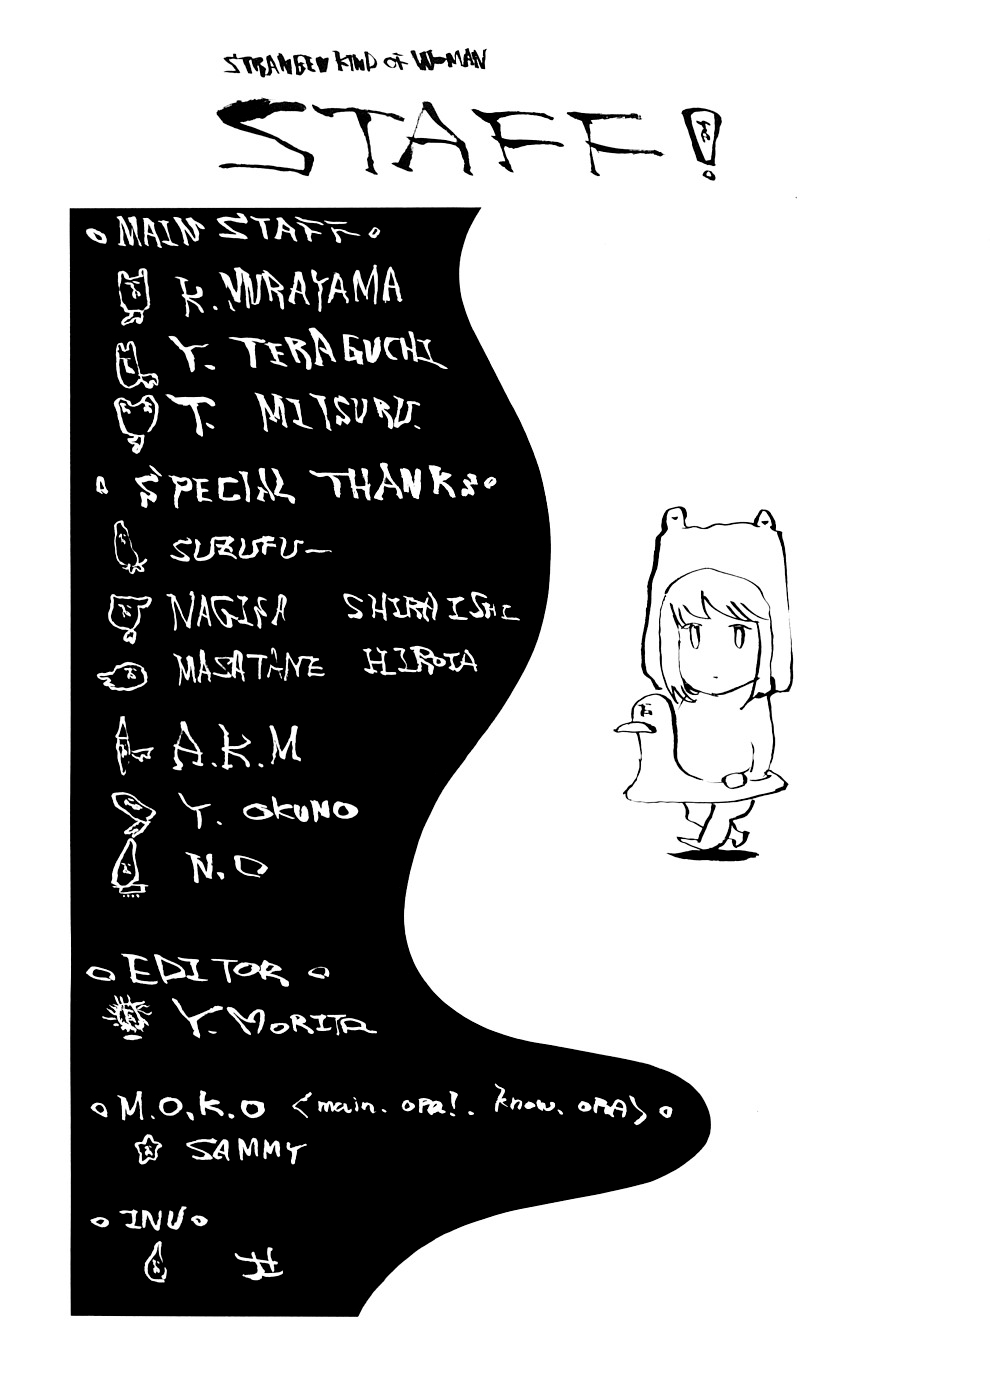 STRANGE KIND OF WOMAN
STAFF!
MAIN STAFF
K. MURAYAMA
Y. TERAGUCHI
T. MITSURU.
SPECIAL THANKS
SUZUFU—
NAGISA SHIRAISHI
MASATANE HIROTA
A.K.M
Y. OKUNO
N.D
EDITOR
Y. MORITA
M.O.K.O <main. OPA!. know. OPA>
SAMMY
INU
井